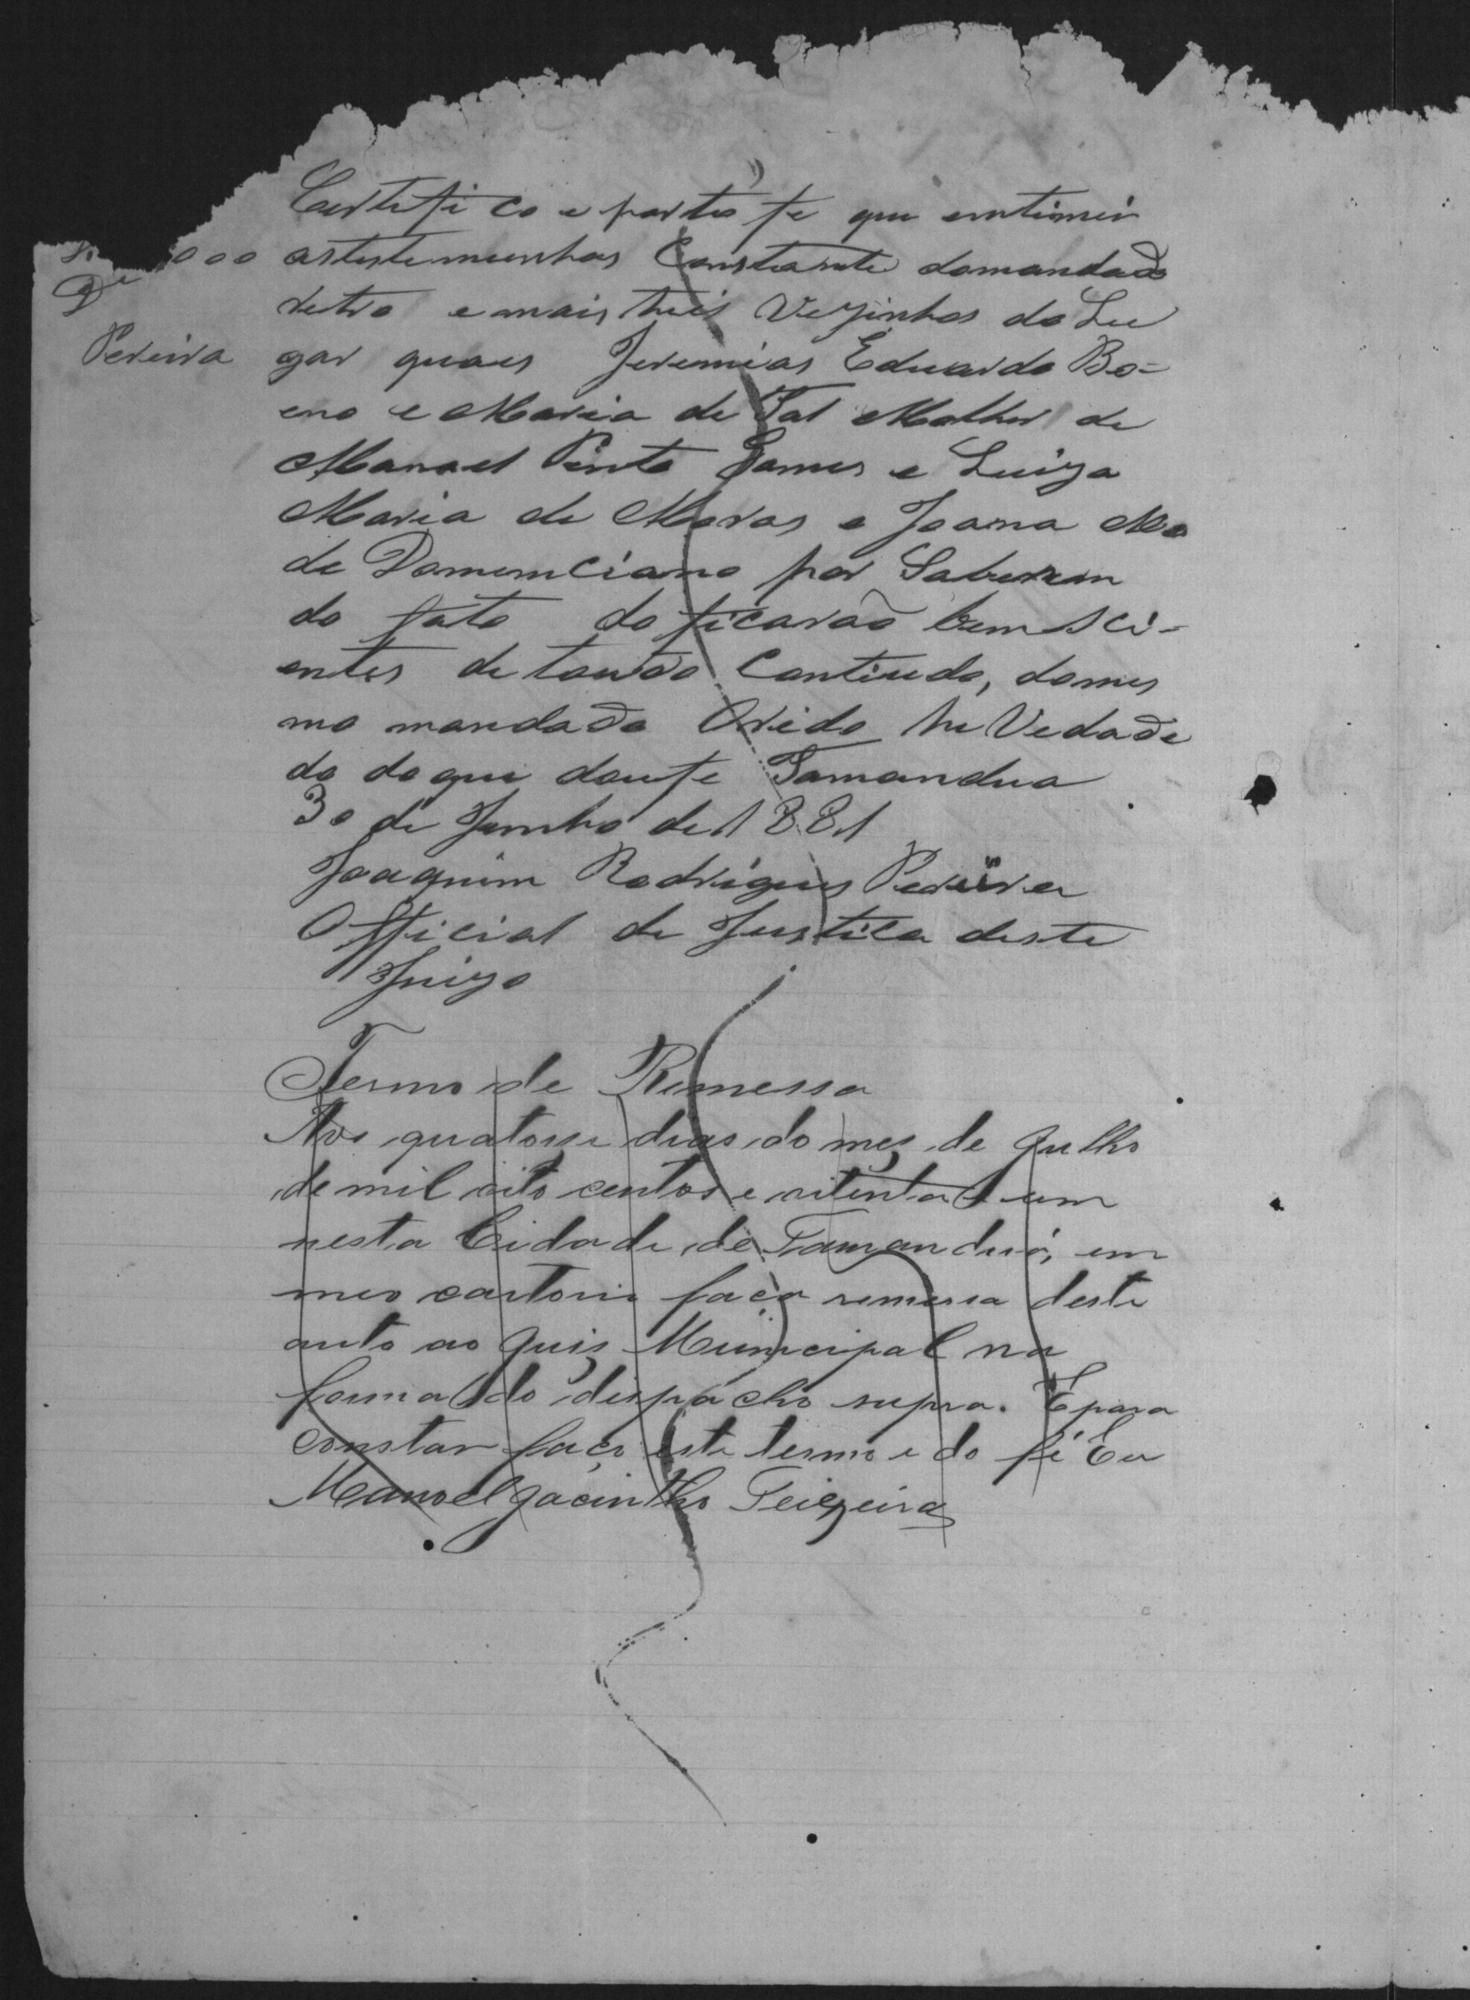 Certefi co e porto fe que entimei
000 astestemunhas Constante domandado
De
retro e mais treis Vezinhos do Lu
Pereira
gar quaes Jeremias Eduardo Bo-
eno e Maria de Tal Molher de
Manoel Pinto Gomes e Luiza
Maria de Moras e Joana Ma
de Domenciano por Saberem
do fato do ficarão bem Sci-
entes de toudo Contiudo, domes
mo mandado Orido he Vedade
do doque doufe Tamandua
30 de Junho de 1881
Joaquim Rodrigues Pereira
Official de Justica deste
Juizo
Termo de Remessa
Aos quatorse dias do mez de Julho
de mil oito centos e oitenta e um
nesta Cidade de Tamanduá, em
meo cartorio faço remessa deste
auto ao Juiz Municipal na
forma do despacho supra. E para
constar faço este termo e do fé Eu
Manoel Jacintho Teixeira